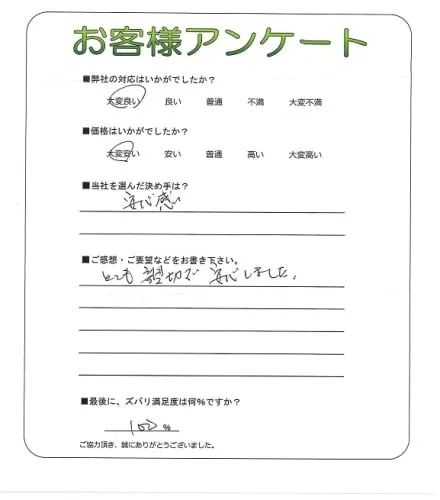 お客様アンケート
■弊社の対応はいかがでしたか？
大変良い 良い 普通 不満 大変不満
■価格はいかがでしたか？
大変安い 安い 普通 高い 大変高い
■当社を選んだ決め手は？
安心感
■ご感想・ご要望などをお書き下さい。
とても親切で安心しました。
■最後に、ズバリ満足度は何%ですか？
100 %
ご協力頂き、誠にありがとうございました。